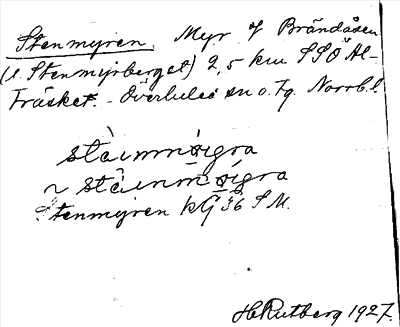 Stenmyren. Myr V Brändåsen
(l. Stenmyrberget) 2,5 km SSÖ Al-
träsket. Överluleå sn o. tg. Norrb. l
stäinmöigra
~ stäinmöigra
Stenmyren kG 36 S M.
H Rutberg 1927.